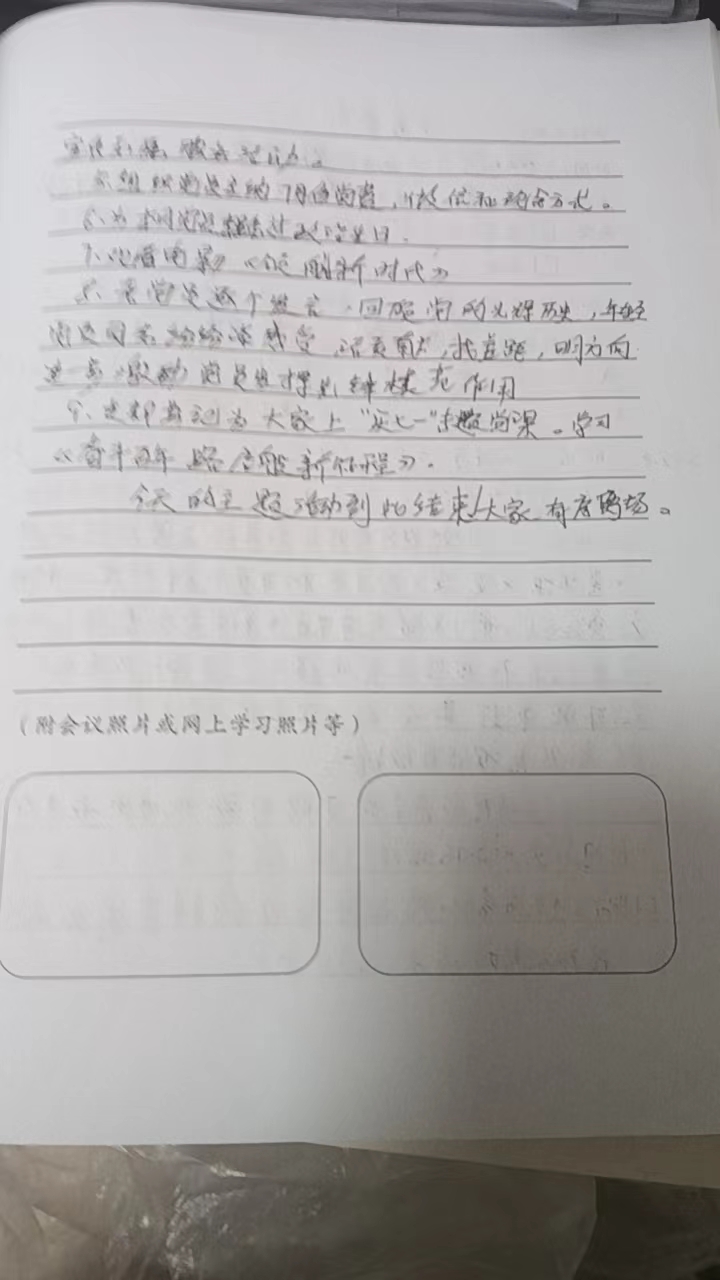 5、组织党员交纳7月份党费,微信和现金方式。
6、为本月党员过政治生日.
7、观看电影《领航新时代》
8、老党员逐个发言,回顾党的光辉历史,年轻
党员同志纷纷谈感受,讲贡献,找差距,明方向
进一步激励党员发挥先锋模范作用
9、支部书记为大家上“庆七一”专题党课。学习
《奋斗百年路 启航新征程》.
今天的主题活动到此结束!大家有序离场。
(附会议照片或网上学习照片等)